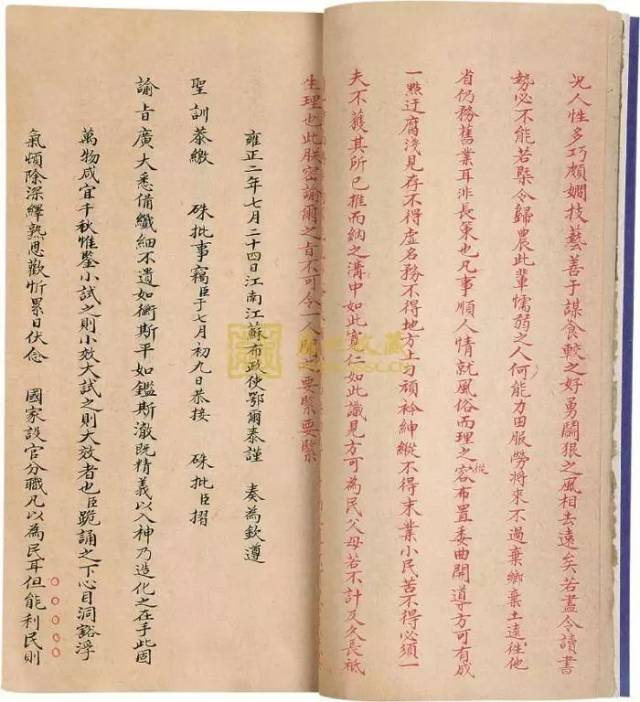 况人性多巧頗嫺技藝善于謀食較之好勇鬪狠之風相去遠矣若盡令讀書
勢必不能若槩令歸農此輩懦弱之人何能力田服勞將來不過棄鄉棄土遠徃他
省仍務舊業耳非長策也凡事順人情就風俗而理之從容布置委曲開導方可有成
一㸃迂腐淺見存不得虛名務不得地方土匀頑衿紳縱不得末業小民苦不得必須一
夫不獲其所己推而納之溝中如此寬仁如此識見方可為民父母若不計及久長祇
生理也此朕密諭爾之旨不可令一人之要緊要緊
雍正二年七月二十四日江南江蘇布政使鄂爾泰謹 奏為欽遵
聖訓恭繳 硃批事竊臣于七月初九日恭接 硃批臣摺
諭旨廣大悉備纖細不遺如衡斯平如鑑斯澈既精義以入神乃造化之在手此固
萬物咸宜千秋惟鑒小試之則小效大試之則大效者也臣跪誦之下心目洞豁浮
氣頓除深繹熟思歡忻累日伏念 國家設官分職凡以為民耳但能利民則